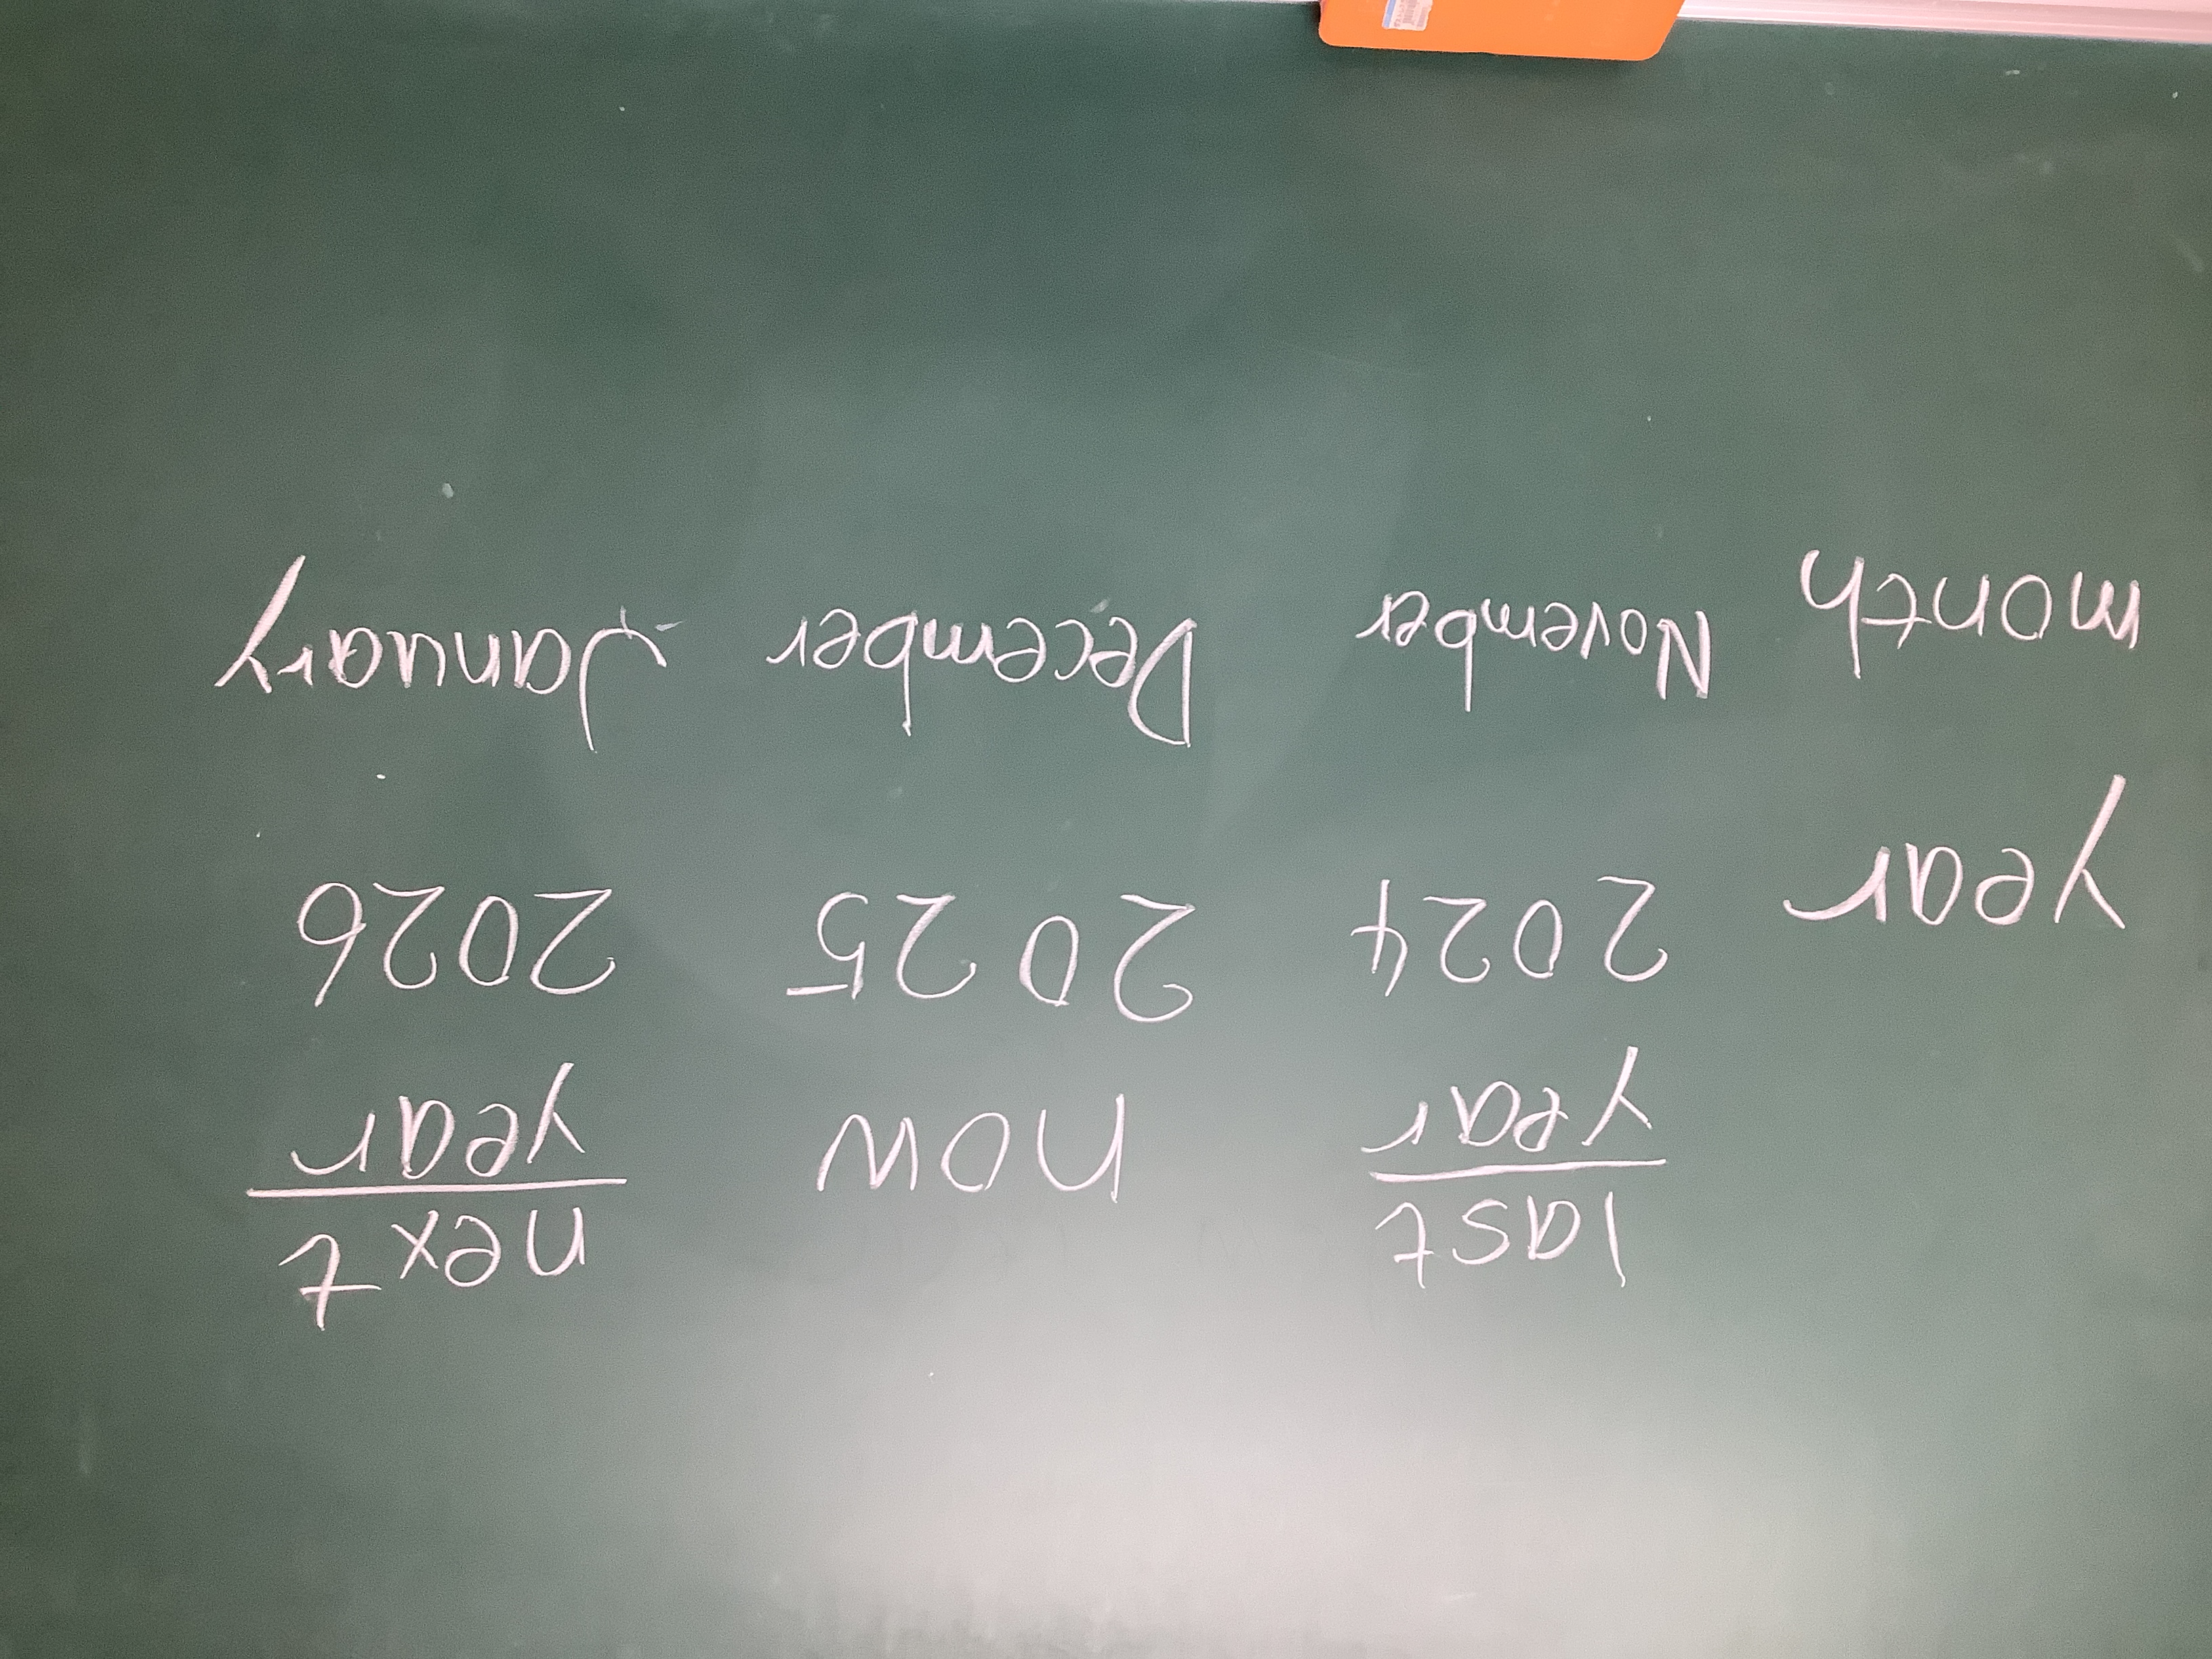 last now next
year year
year 2024 2025 2026
month November December January